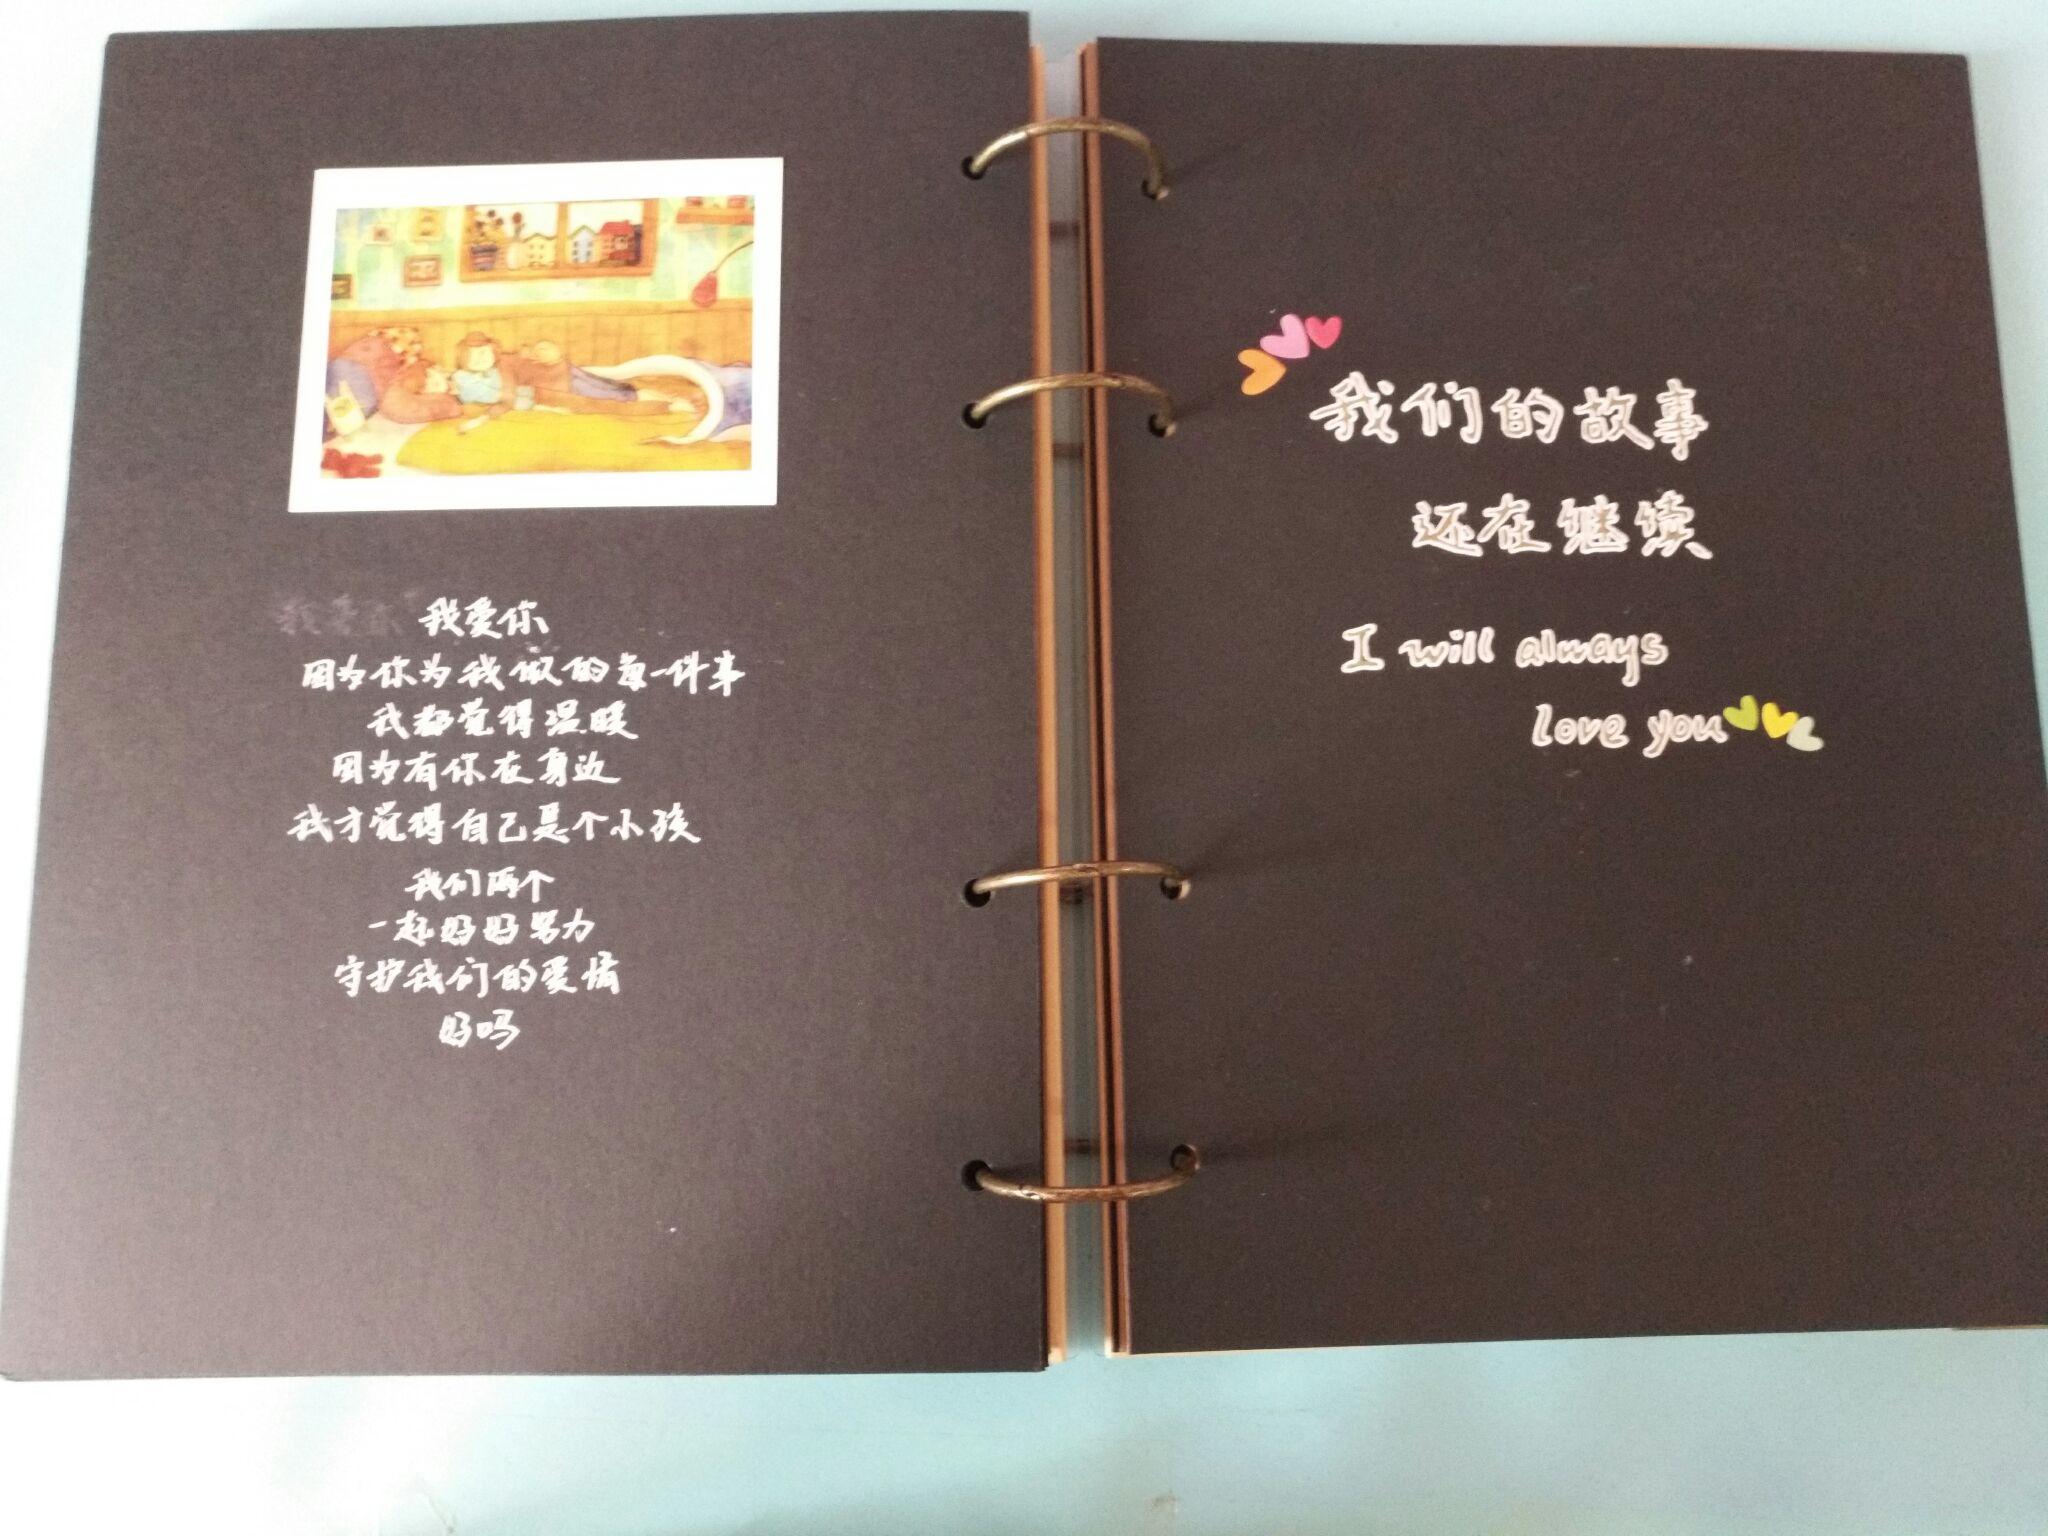 我爱你
因为你为我做的每一件事
我都觉得温暖
因为有你在身边
我才觉得自己是个小孩
我们两个
一起好好努力
守护我们的爱情
好吗
我们的故事
还在继续
I will always
love you